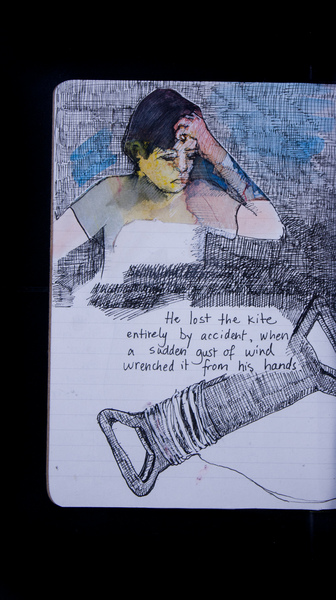 He lost the kite
entirely by accident, when
a sudden gust of wind
wrenched it from his hands